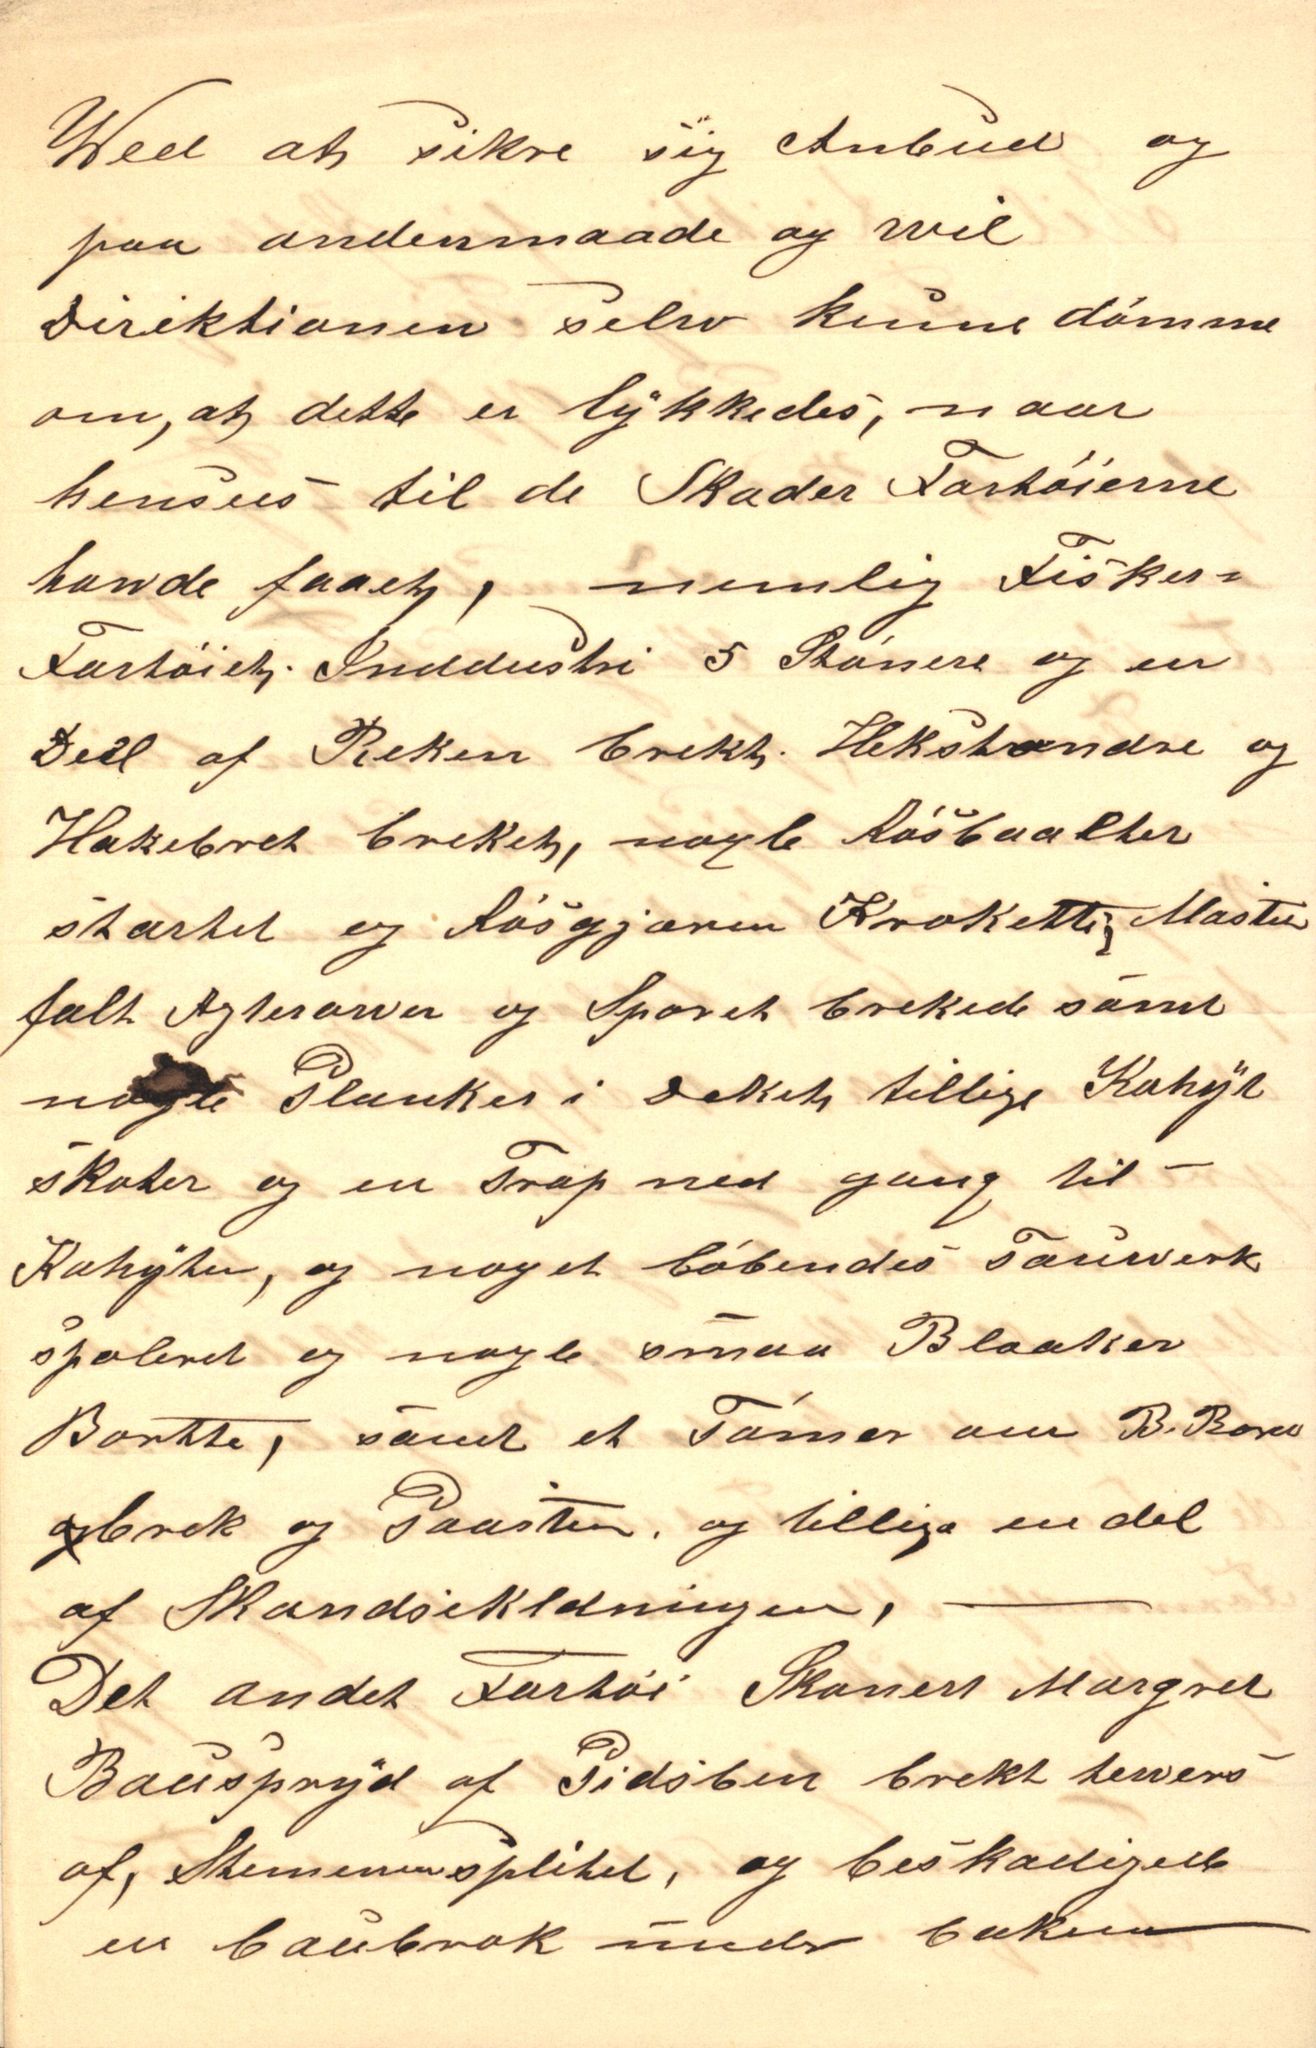 Wed at sikre sig Anbud og
paa andenmaade og wil
Direktionen selw kunne dömme
om, at dette er lykkedes, naar
hensees til de Skader Fartöierne
hawde faaet, nemlig Fisker-
Fartöiet. Inddustri 5 Stönere og en
Deel af Reken brekt. Hekstandre og
Hakebret breket, nogle Rösbaalter
startet og Rösgjæren Krokette, Masten
falt Agterower og Sporet brekede samt
nogle Planker i Deket, tillige Kahyt
skoter og en Trap ned gang til
Kahyten, og noget löbendes Tauwerk
spoleret og nogle smaa Blaaker
Bortte, samt et Tömer om B. Bord
brek og Paasten. og tillige en del
af Skandsekldningen,
Det andet Fartöi Skonert Margret
Bauspryd af Pidsben brekt tewers
af, Stemenen splitet, og beskadigede
en baubrok under baken